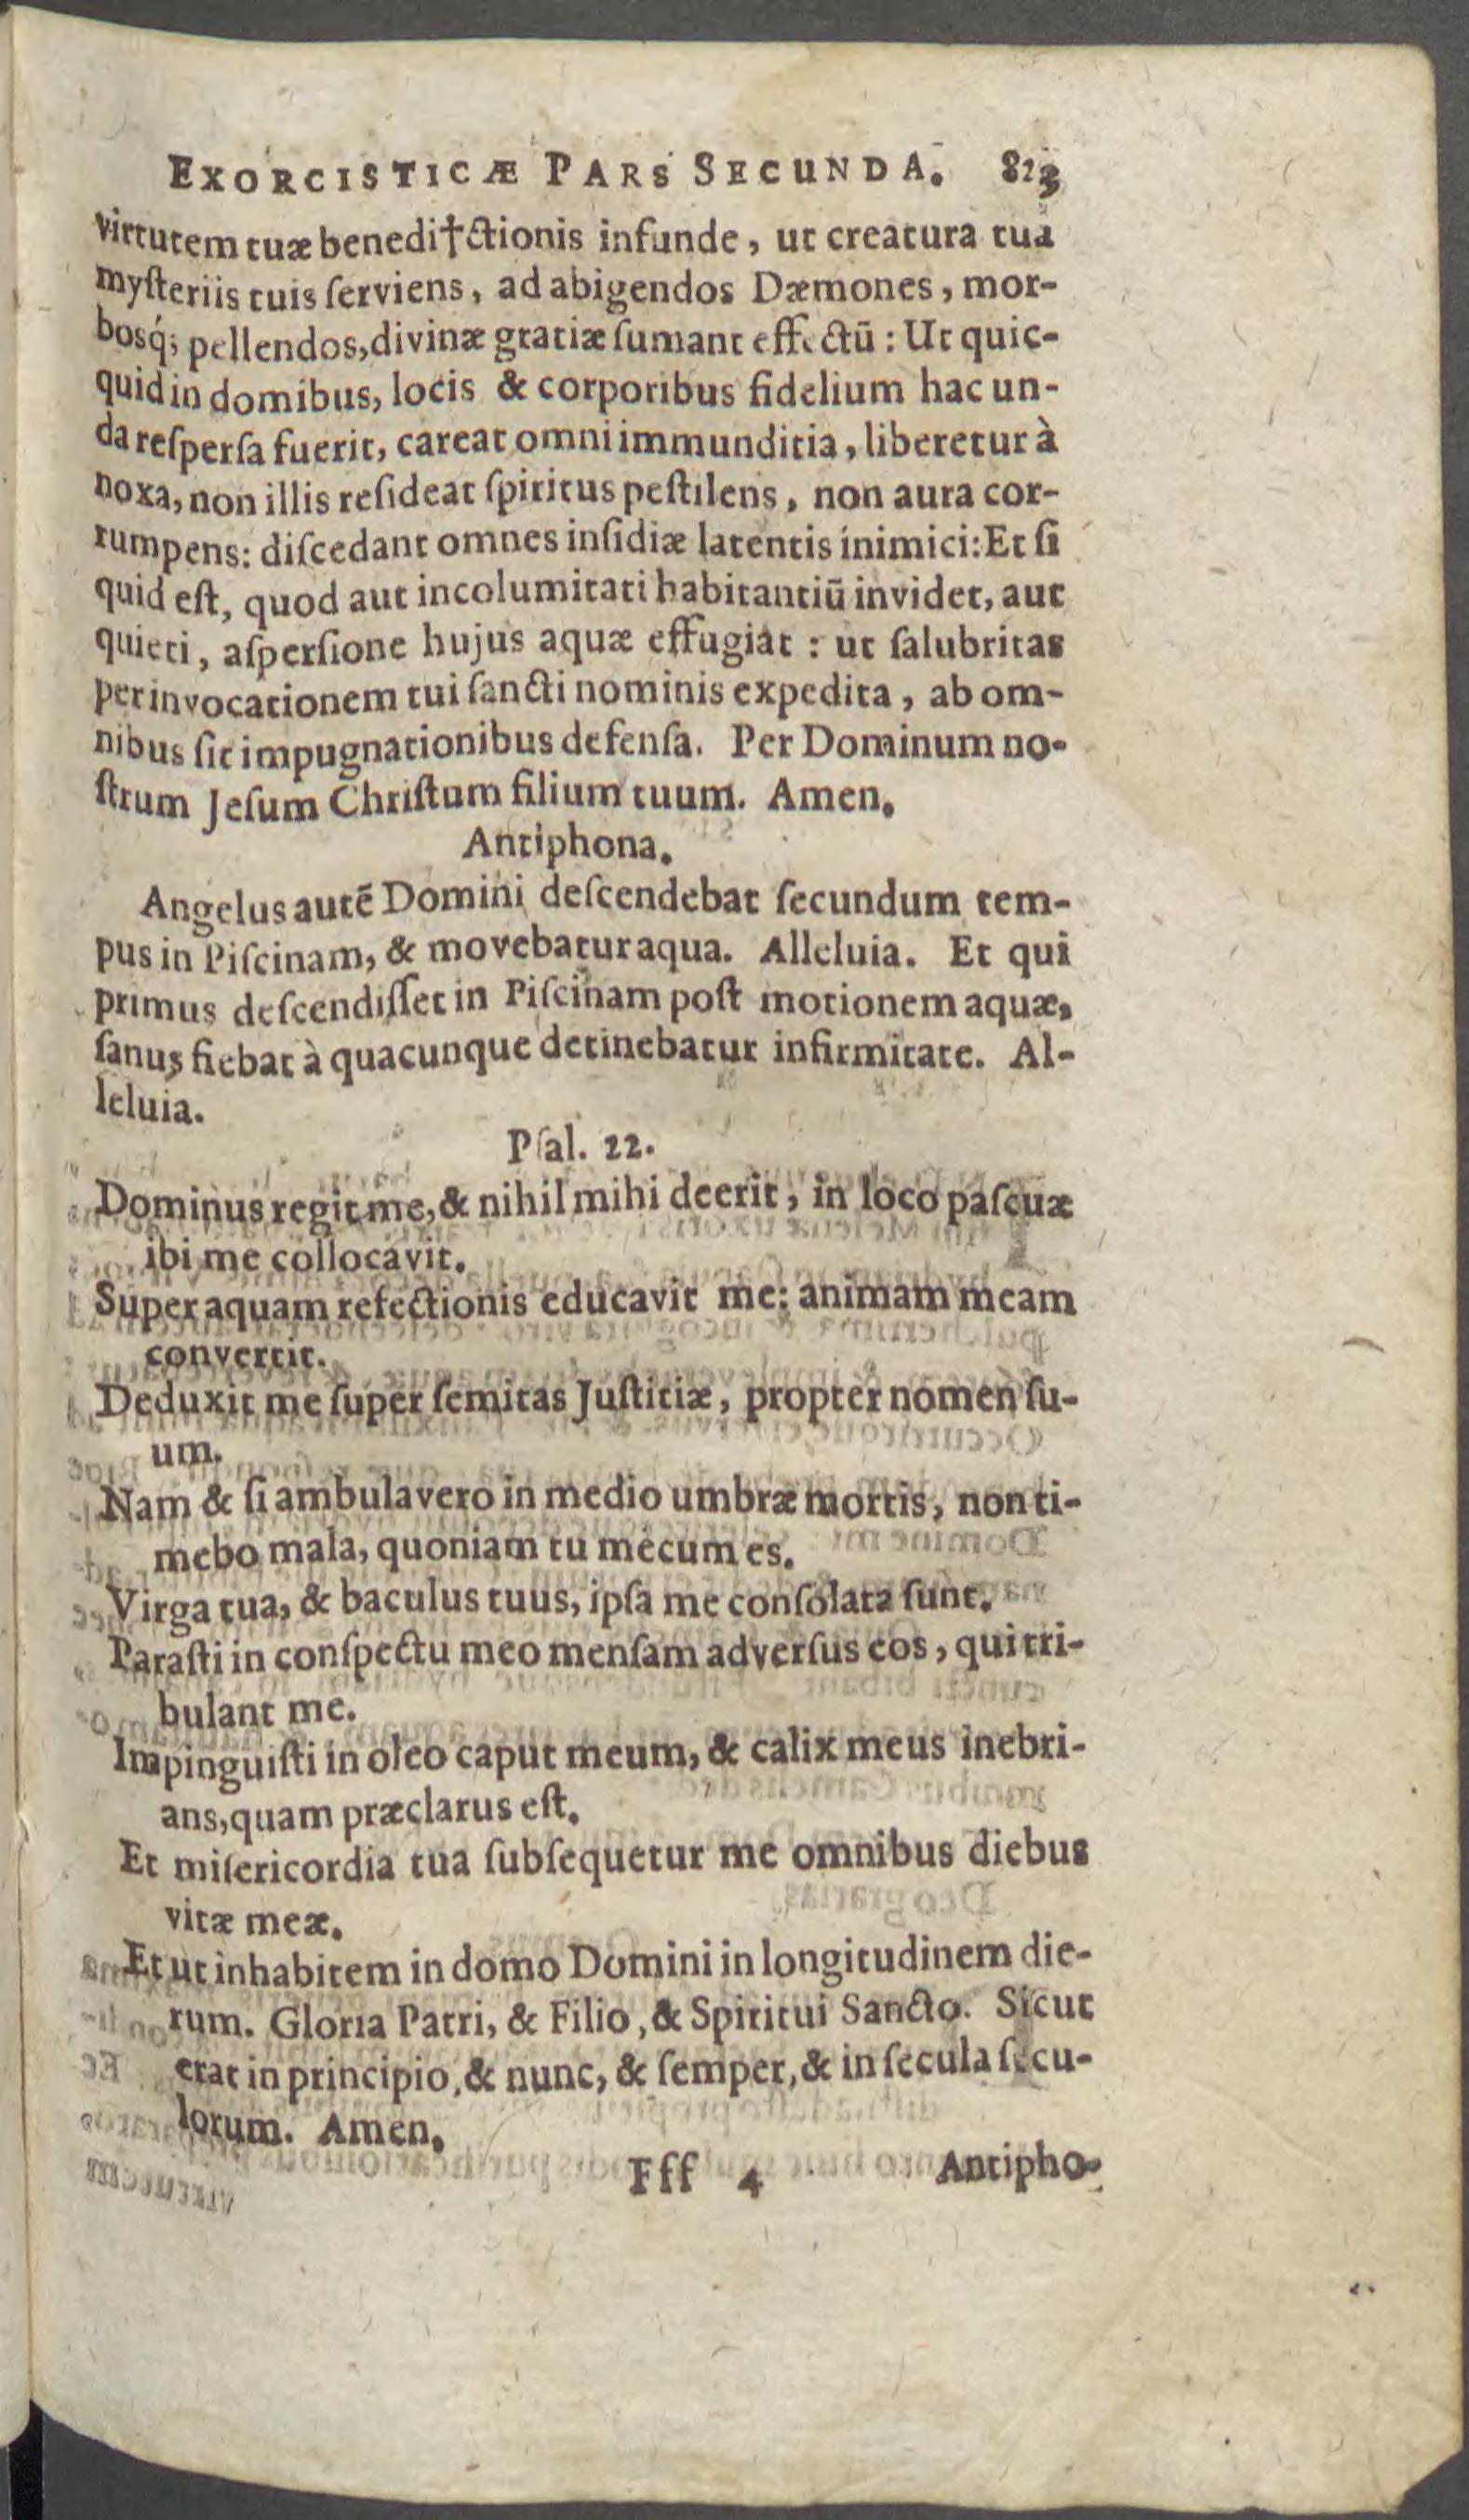 EXORCISTICÆ PARS SECUNDA. 823
virtutem tuæ benedi†ctionis infunde, ut creatura tua
myſteriis tuis ſerviens, ad abigendos Dæmones, mor-
bosq́; pellendos, divinæ gratiæ ſumant effectū: Ut quic-
quid in domibus, locis & corporibus fidelium hac un-
da reſperſa fuerit, careat omni immunditia, liberetur à
noxa, non illis reſideat ſpiritus peſtilens, non aura cor-
rumpens: diſcedant omnes inſidiæ latentis inimici: Et ſi
quid eſt, quod aut incolumitati habitantiū invidet, aut
quieti, aſperſione hujus aquæ effugiat: ut ſalubritas
per invocationem tui ſancti nominis expedita, ab om-
nibus ſit impugnationibus defenſa. Per Dominum no-
ſtrum Jeſum Chriſtum filium tuum. Amen.
Antiphona.
Angelus autē Domini deſcendebat ſecundum tem-
pus in Piſcinam, & movebatur aqua. Alleluia. Et qui
primus deſcendiſſet in Piſcinam poſt motionem aquæ,
ſanus fiebat à quacunque detinebatur infirmitate. Al-
leluia.
Pſal. 22.
Dominus regit me, & nihil mihi deerit, in loco paſcuæ
ibi me collocavit.
Super aquam refectionis educavit me: animam meam
convertit.
Deduxit me ſuper ſemitas Juſtitiæ, propter nomen ſu-
um.
Nam & ſi ambulavero in medio umbræ mortis, non ti-
mebo mala, quoniam tu mecum es.
Virga tua, & baculus tuus, ipſa me conſolata ſunt.
Paraſti in conſpectu meo menſam adverſus eos, qui tri-
bulant me.
Impinguiſti in oleo caput meum, & calix meus inebri-
ans, quam præclarus eſt.
Et miſericordia tua ſubſequetur me omnibus diebus
vitæ meæ.
Et ut inhabitem in domo Domini in longitudinem die-
rum. Gloria Patri, & Filio, & Spiritui Sancto. Sicut
erat in principio, & nunc, & ſemper, & in ſecula ſecu-
lorum. Amen.
Fff 4 Antipho-